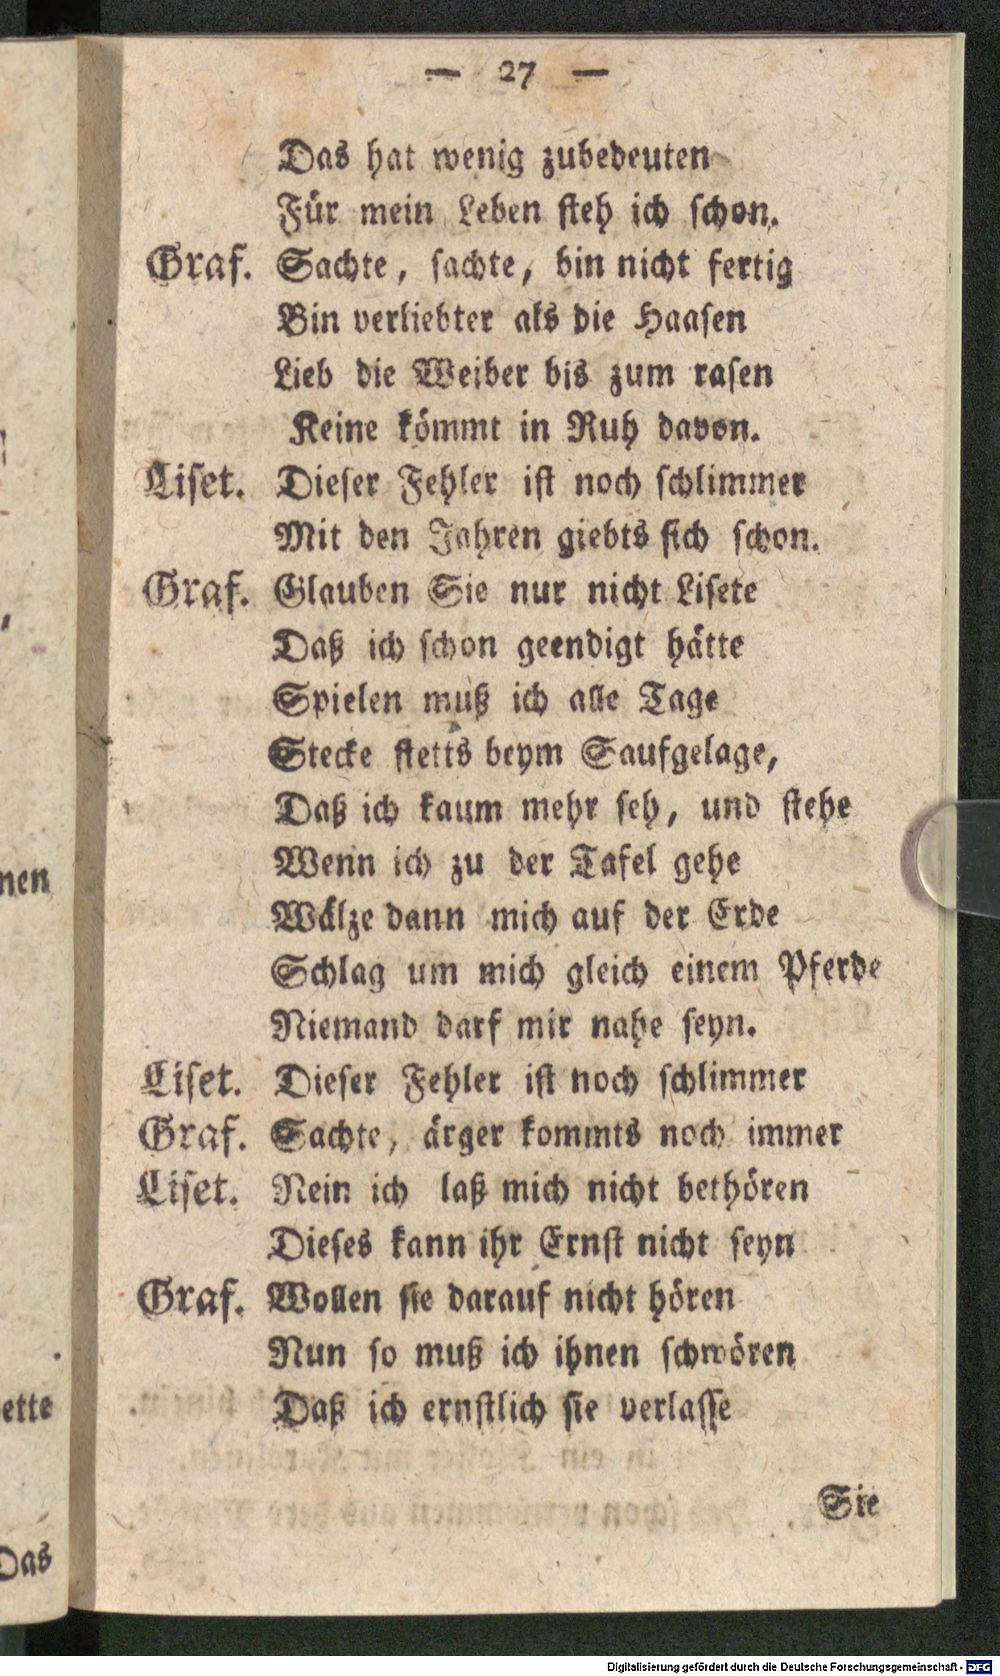 — 27 —
Das hat wenig zubedeuten
Für mein Leben steh ich schon.
Graf. Sachte, sachte, bin nicht fertig
Bin verliebter als die Haasen
Lieb die Weiber bis zum rasen
Keine kömmt in Ruh davon.
Liset. Dieser Fehler ist noch schlimmer
Mit den Jahren giebts sich schon.
Graf. Glauben Sie nur nicht Lisete
Daß ich schon geendigt hätte
Spielen muß ich alle Tage
Stecke stetts beym Saufgelage,
Daß ich kaum mehr seh, und stehe
Wenn ich zu der Tafel gehe
Wälze dann mich auf der Erde
Schlag um mich gleich einem Pferde
Niemand darf mir nahe seyn.
Liset. Dieser Fehler ist noch schlimmer
Graf. Sachte, ärger kommts noch immer
Liset. Nein ich laß mich nicht bethören
Dieses kann ihr Ernst nicht seyn
Graf. Wollen sie darauf nicht hören
Nun so muß ich ihnen schwören
Daß ich ernstlich sie verlasse
Sie
nen
ette
Das
Digitalisierung gefördert durch die Deutsche Forschungsgemeinschaft - DFG